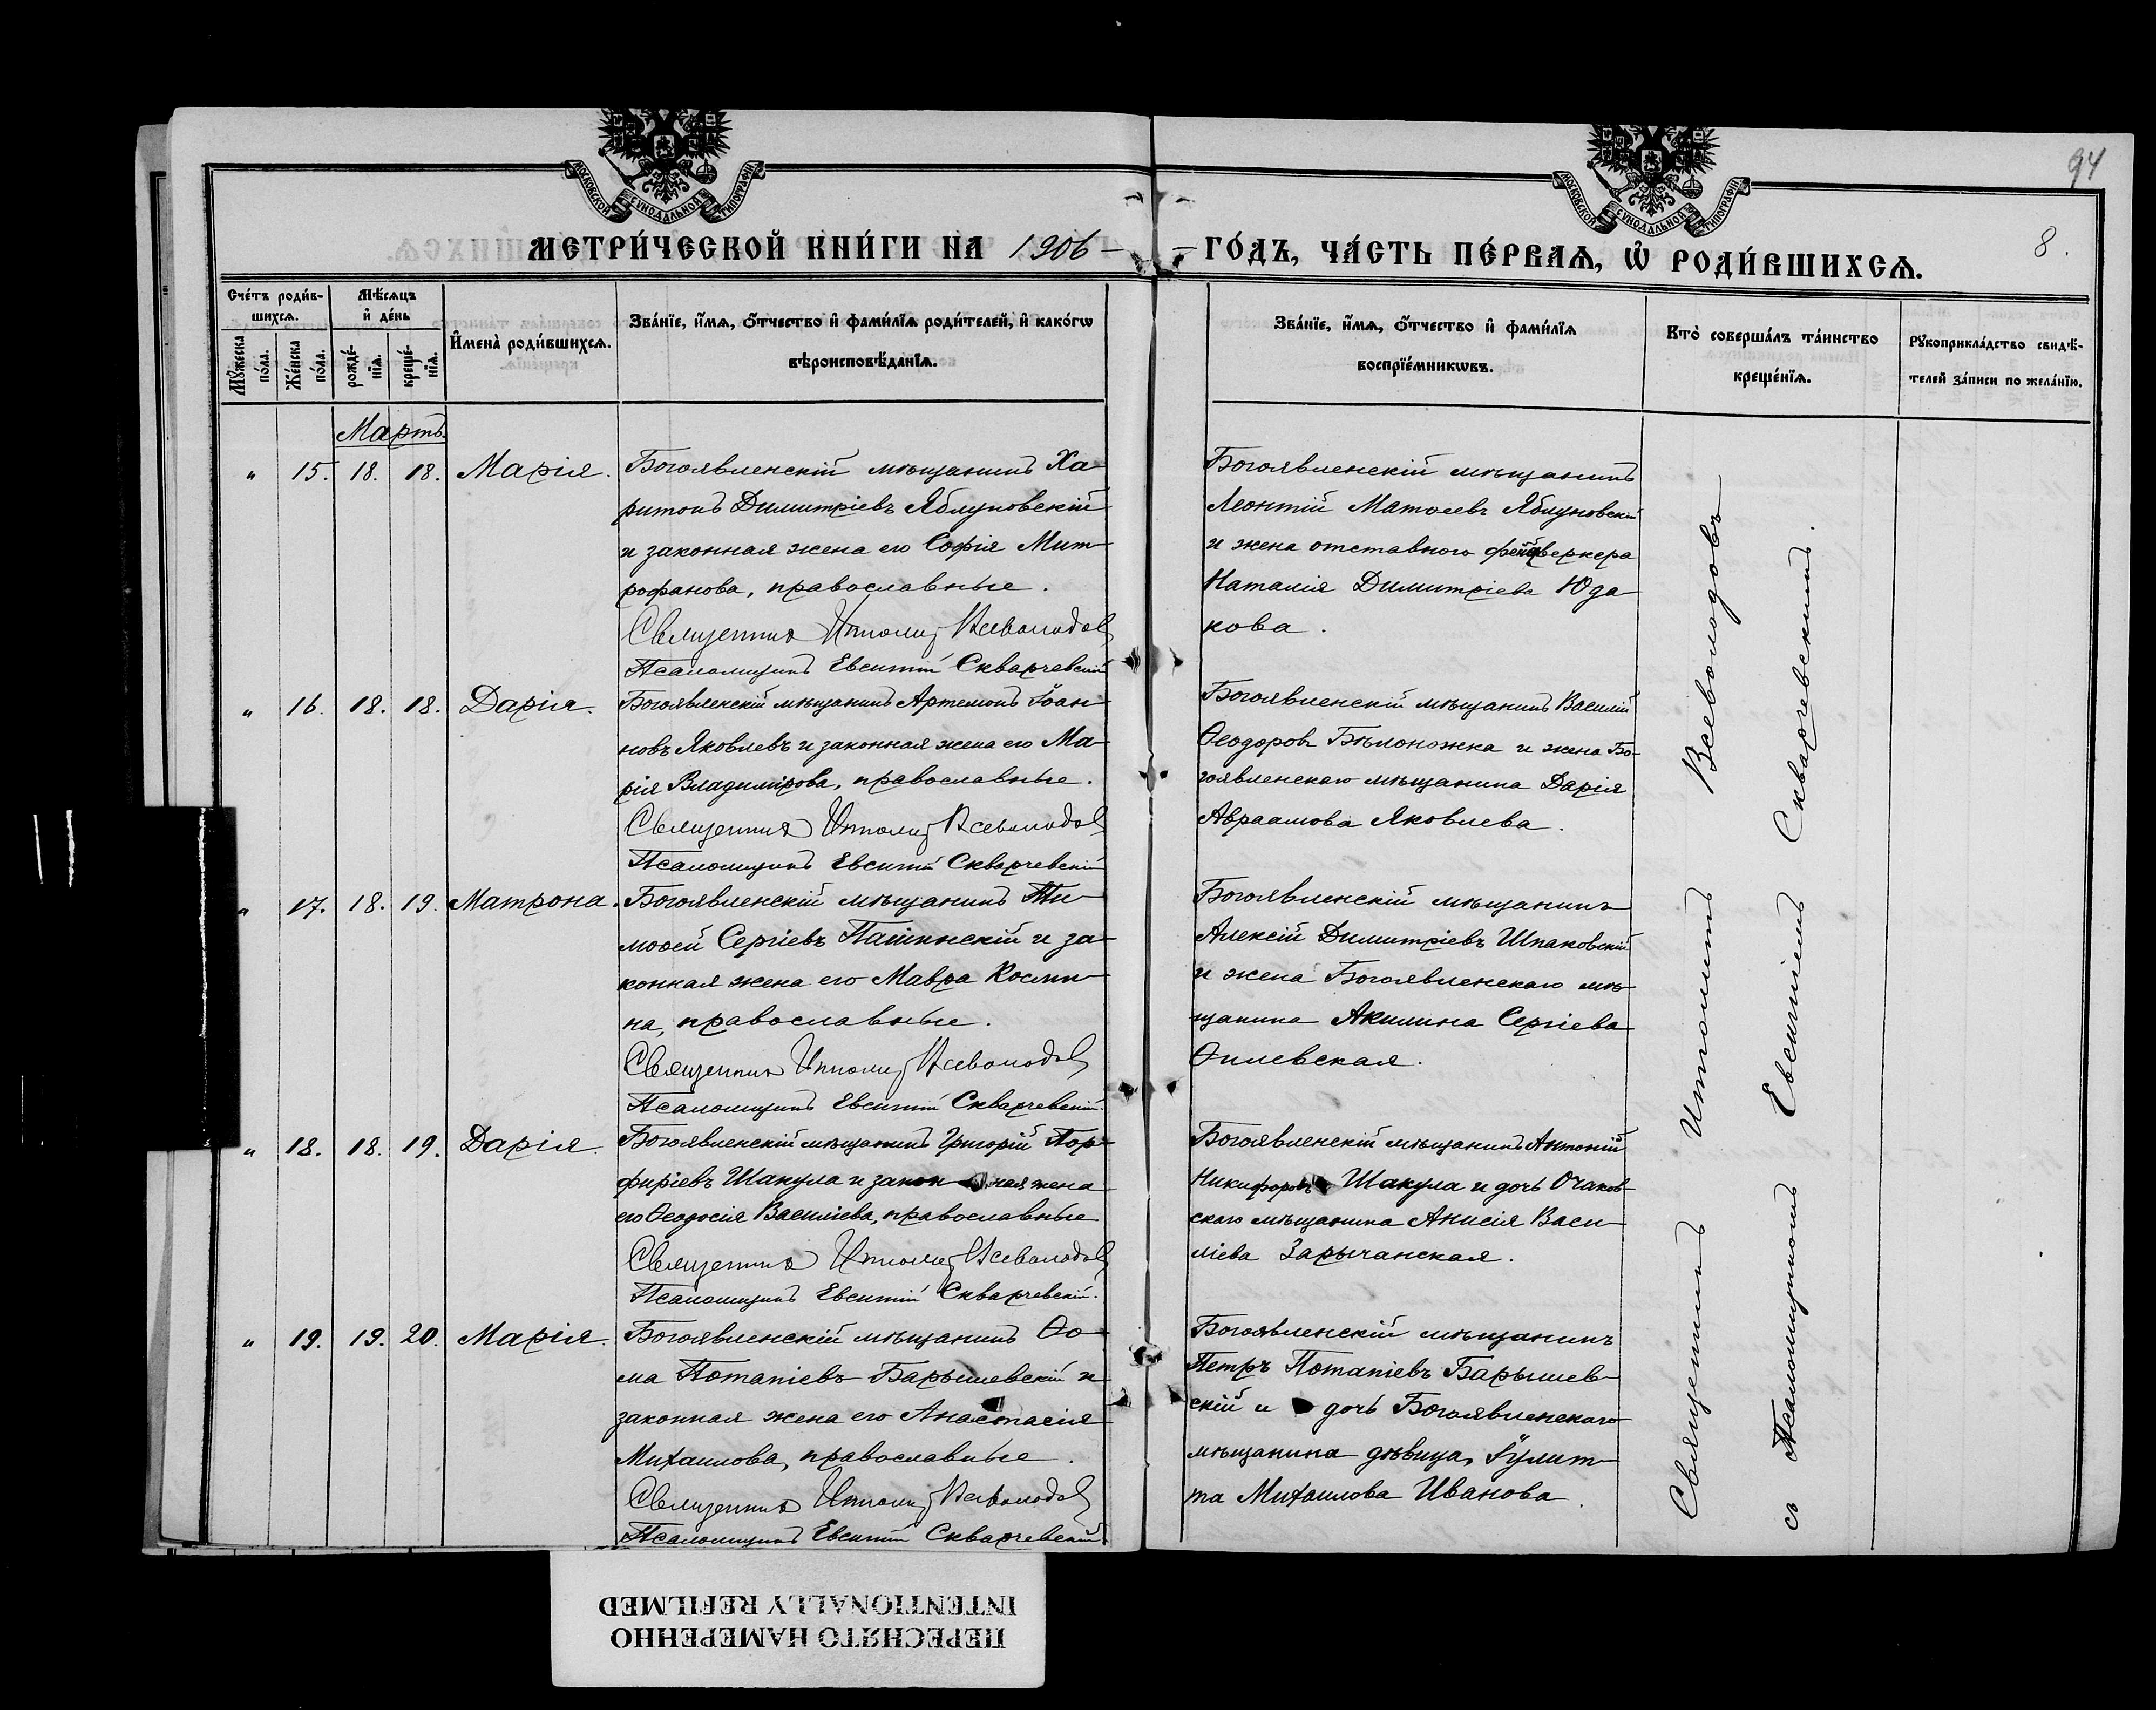 94
МОСКОВСКОЙ СѴНОДАЛЬНОЙ ТИПОГРАФІИ
МОСКОВСКОЙ СѴНОДАЛЬНОЙ ТИПОГРАФІИ
МЕТРИ́ЧЕСКОЙ КНИ́ГИ НА 1906 – – ГО́ДЪ, ЧА́СТЬ ПЕ́РВАѦ, Ѡ РОДИ́ВШИХСѦ.
8.
Сче́тъ роди́в-
шихсѧ.
Мꙋ́жеска по́ла.
Же́нска по́ла.
Мѣ́сѧцъ
и҆ де́нь
рожде́-
нїѧ.
креще́-
нїѧ.
И҆мена̀ роди́вшихсѧ.
Зва́нїе, и҆́мѧ, ѻ҆́тчество и҆ фами́лїѧ роди́телей, и҆ како́гѡ
вѣроисповѣ́данїѧ.
Зва́нїе, и҆́мѧ, ѻ҆́тчество и҆ фами́лїѧ
воспрїе́мникѡвъ.
Кто̀ соверша́лъ та́инство
креще́нїѧ.
Рꙋкоприкла́дство свидѣ́-
телей за́писи по жела́нїю.
Мартъ.
" 15. 18. 18. Марія.
Богоявленскій мѣщанинъ Ха-
ритонъ Димитріевъ Яблуновскій
и законная жена его Софія Мит-
рофанова, православные.
Священникъ Ипполитъ Всеволодовъ
Псаломщикъ Евсигній Скварчевскій
Богоявленскій мѣщанинъ
Леонтій Матѳеевъ Яблуновскій
и жена отставного фейерверкера
Наталія Димитріева Юда-
кова.
" 16. 18. 18. Дарія.
Богоявленскій мѣщанинъ Артемонъ Іоан-
новъ Яковлевъ и законная жена его Ма-
рія Владимірова, православные.
Священникъ Ипполитъ Всеволодовъ
Псаломщикъ Евсигній Скварчевскій
Богоявленскій мѣщанинъ Василій
Ѳеодоровъ Бѣлоножка и жена Бо-
гоявленскаго мѣщанина Дарія
Авраамова Яковлева.
" 17. 18. 19. Матрона.
Богоявленскій мѣщанинъ Ти-
моѳей Сергіевъ и за-
конная жена его Мавра Косми-
на, православные.
Священникъ Ипполитъ Всеволодовъ
Псаломщикъ Евсигній Скварчевскій
Богоявленскій мѣщанинъ
Алексій Димитріевъ Шпаковскій
и жена Богоявленскаго мѣ-
щанина Акилина Сергіева
" 18. 18. 19. Дарія.
Богоявленскій мѣщанинъ Григорій Пор-
фиріевъ Шакула и законная жена
его Ѳеодосія Василіева, православные
Священникъ Ипполитъ Всеволодовъ
Псаломщикъ Евсигній Скварчевскій.
Богоявленскій мѣщанинъ Антоній
Никифоровъ Шакула и дочь Очаков-
скаго мѣщанина Анисія Васи-
ліева Зарычанская.
" 19. 19. 20. Марія.
Богоявленскій мѣщанинъ Ѳо-
ма Потапіевъ Барышевскій и
законная жена его Анастасія
Михаилова, православные.
Священникъ Ипполитъ Всеволодовъ
Псаломщикъ Евсигній Скварчевскій
Богоявленскій мѣщанинъ
Петръ Потапіевъ Барышев-
скій и дочь Богоявленскаго
мѣщанина дѣвица Іулит-
та Михаилова Иванова.
Священникъ Ипполитъ Всеволодовъ
съ Псаломщикомъ Евсигніемъ Скварчевскимъ.
ПЕРЕСНЯТО НАМЕРЕННО
INTENTIONALLY REFILMED